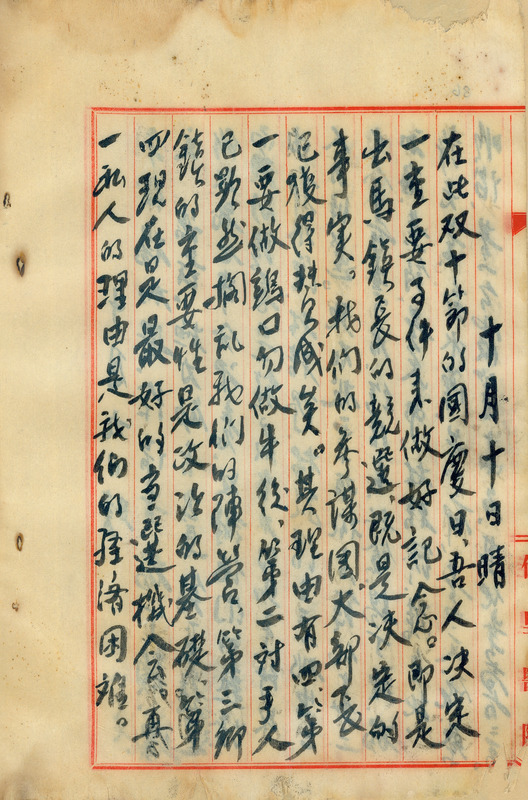 十月十日晴
在此双十節的國慶日、吾人决定
一重要事件来做好記念。即是
出馬鎮長的競選既是决定的
事实。我們的參謀團、大部長
已獲得其贊成矣。其理由有四、第
一要做鷄口勿做牛後、第二対手人
已顯然搁乱我們的陣營、第三鄉
鎮的重要性是政治的基礎、第
四現在是最好的重選機会。再
一私人的理由是我們的経済困难。